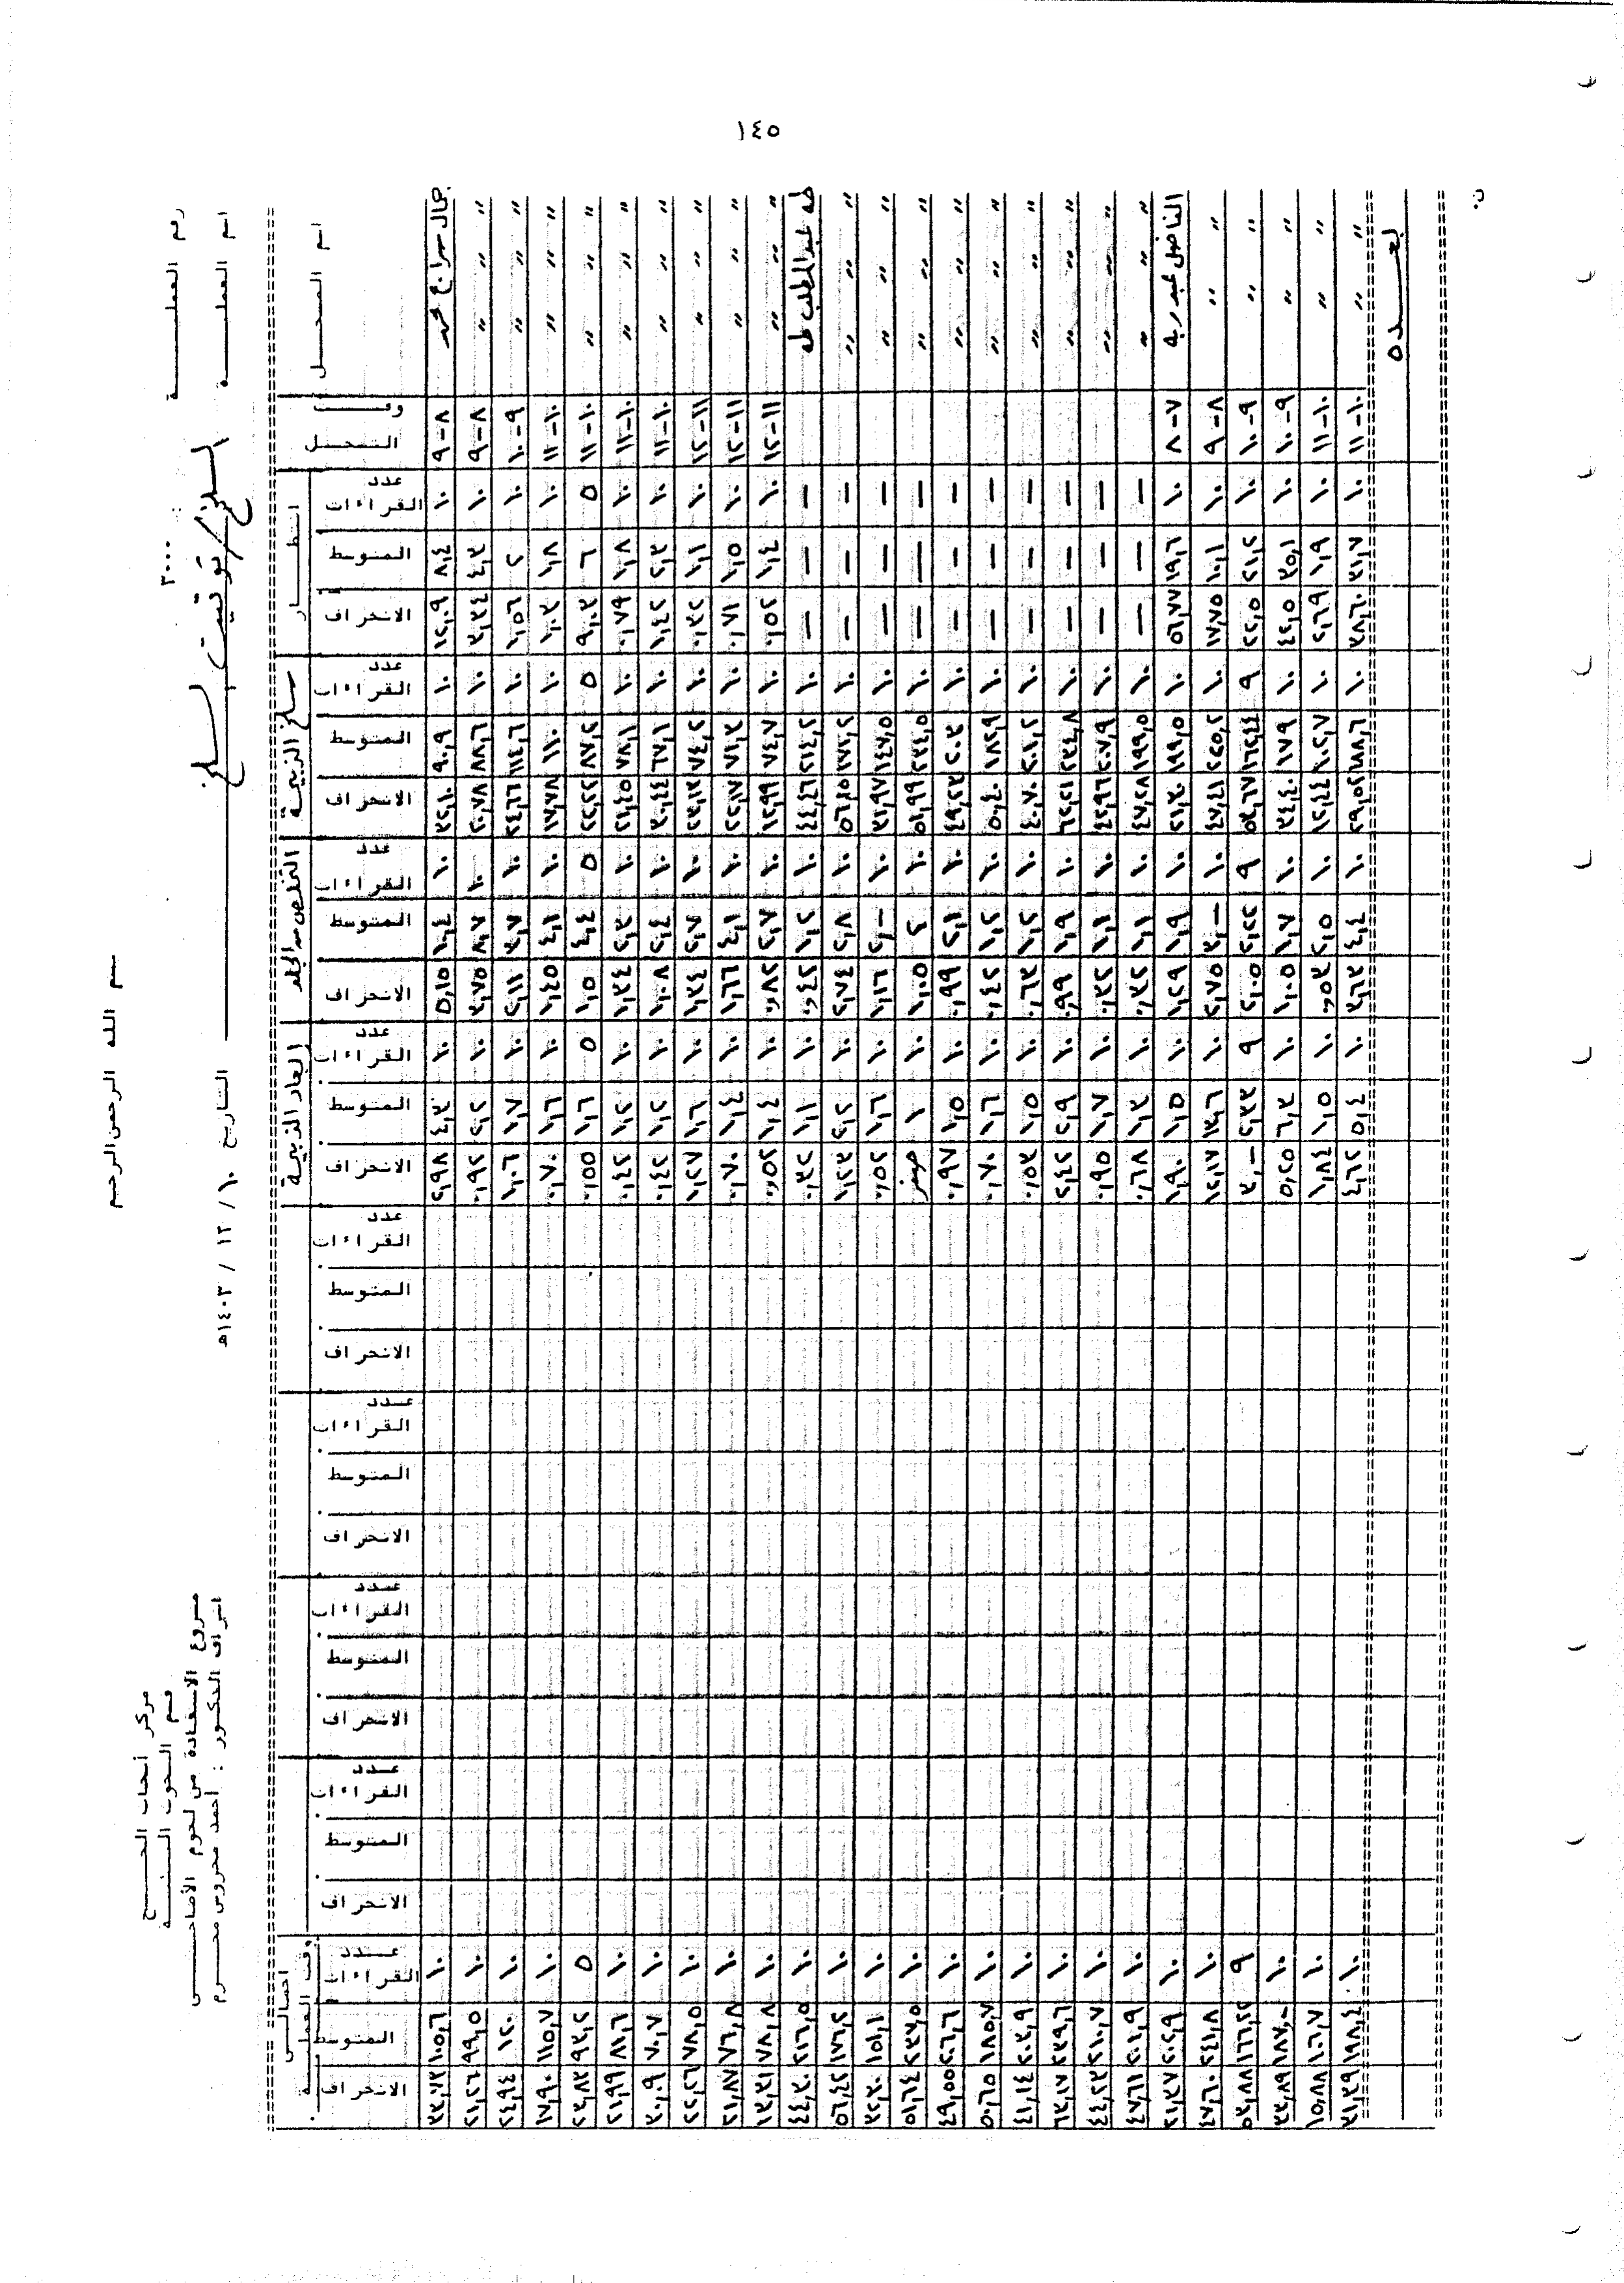 ١٤٥
بسم الله الرحمن الرحيم
مركز أبحاث الحج
قسم البحوث
مشروع الاستفادة من لحوم الأضاحي
اشراف الدكتور : أحمد محروس محرم
رقم العملية ٣٠٠٠
اسم العملية السلخ / توقيت السلخ التاريخ ١٠ / ١٢ / ١٤٠٣ه
اسم المسجل وقت التسجيل انتظار سلخ الذبيحة التخلص من الجلد ابعاد الذبيحة اجمالي وقت العملية
عدد القراءات المتوسط الانحراف عدد القراءات المتوسط الانحراف عدد القراءات المتوسط الانحراف عدد القراءات المتوسط الانحراف عدد القراءات المتوسط الانحراف عدد القراءات المتوسط الانحراف عدد القراءات المتوسط الانحراف عدد القراءات المتوسط الانحراف عدد القراءات المتوسط الانحراف
جمال سراج محمد ٨-٩ ١٠ ٨,٤ ١٢,٠٩ ١٠ ٩٠,٩ ٣٢,١٠ ١٠ ١,٤ ٥,١٥ ١٠ ٤,٣ ٢,٩٨ ١٠ ١٠٥,٦ ٣٣,٧٣
" " " ٨-٩ ١٠ ٤,٣ ٣,٣٤ ١٠ ٨٨,٦ ٢٠,٧٨ ١٠ ٨,٧ ٣,٧٥ ١٠ ٢,٢ ٠,٩٢ ١٠ ٩٩,٥ ٢١,٢٦
" " " ٩-١٠ ١٠ ٢ ١,٥٦ ١٠ ١١٤,٦ ٢٤,٦٦ ١٠ ٣,٧ ٢,١١ ١٠ ١,٧ ١,٠٦ ١٠ ١٢٠ ٢٤,٩٤
" " " ١٠-١١ ١٠ ١,٨ ١,٠٣ ١٠ ١١٠ ١٧,٧٨ ١٠ ٤,١ ١,٤٥ ١٠ ١,٦ ٠,٧٠ ١٠ ١١٥,٧ ١٧,٩٠
" " " ١٠-١١ ٥ ٦ ٩,٠٣ ٥ ٨٧,٢ ٢٢,٢٢ ٥ ٤,٤ ١,٥ ٥ ١,٦ ٠,٥٥ ٥ ٩٣,٢ ٢٣,٨٣
" " " ١٠-١١ ١٠ ١,٨ ٠,٧٩ ١٠ ٧٨,١ ٢١,٤٥ ١٠ ٢,٣ ١,٣٤ ١٠ ١,٢ ٠,٤٢ ١٠ ٨١,٦ ٢١,٩٩
" " " ١٠-١١ ١٠ ٢,٣ ١,٤٢ ١٠ ٦٧,١ ٣٠,٤٤ ١٠ ٢,٤ ١,٠٨ ١٠ ١,٢ ٠,٤٢ ١٠ ٧٠,٧ ٣٠,٠٩
" " " ١١-١٢ ١٠ ١,١ ٠,٣٢ ١٠ ٧٤,٢ ٢٣,١٧ ١٠ ٢,٧ ١,٣٤ ١٠ ١,٦ ١,٢٧ ١٠ ٧٨,٥ ٢٢,٢٦
" " " ١١-١٢ ١٠ ١,٥ ٠,٧١ ١٠ ٧١,٣ ٢٢,١٧ ١٠ ٤,١ ١,٦٦ ١٠ ١,٤ ٠,٧٠ ١٠ ٧٦,٨ ٢١,٨٧
" " " ١١-١٢ ١٠ ١,٤ ٠,٥٢ ١٠ ٧٤,٧ ١٢,٩٩ ١٠ ٢,٧ ٠,٨٢ ١٠ ١,٤ ٠,٥٢ ١٠ ٧٨,٨ ١٣,٣١
طه عبدالمطلب طه — — — ١٠ ٢١٤,٢ ٤٤,٤٦ ١٠ ١,٢ ٠,٤٢ ١٠ ١,١ ٠,٣٢ ١٠ ٢١٦,٥ ٤٤,٣٠
" " " — — — ١٠ ١٧١,٢ ٥٦,١٥ ١٠ ٢,٨ ٢,٧٤ ١٠ ٢,٢ ١,٢٣ ١٠ ١٧٦,٢ ٥٦,٤٢
" " " — — — ١٠ ١٤٧,٥ ٣١,٩٧ ١٠ ٢,- ١,١٦ ١٠ ١,٦ ٠,٥٢ ١٠ ١٥١,١ ٣٢,٣٠
" " " — — — ١٠ ٢٣٤,٥ ٥١,٩٩ ١٠ ٢ ١,٠٥ ١٠ ١ صفر ١٠ ٢٣٧,٥ ٥١,٦٤
" " " — — — ١٠ ٢٠٣ ٤٩,٢٣ ١٠ ٢,١ ٠,٩٩ ١٠ ١,٥ ٠,٩٧ ١٠ ٢٠٦,٦ ٤٩,٥٥
" " " — — — ١٠ ١٨٢,٩ ٥٠,٤٠ ١٠ ١,٢ ٠,٤٢ ١٠ ١,٦ ٠,٧٠ ١٠ ١٨٥,٧ ٥٠,٦٥
" " " — — — ١٠ ٢٠١,٢ ٤٠,٧٠ ١٠ ١,٢ ٠,٦٣ ١٠ ١,٥ ٠,٥٣ ١٠ ٢٠٣,٩ ٤١,١٤
" " " — — — ١٠ ٢٣٤,٨ ٦٢,٢١ ١٠ ١,٩ ٠,٩٩ ١٠ ٢,٩ ٢,٤٢ ١٠ ٢٣٩,٦ ٦٣,١٧
" " " — — — ١٠ ٢٠٧,٩ ٤٢,٩٦ ١٠ ١,١ ٠,٣٢ ١٠ ١,٧ ٠,٩٥ ١٠ ٢١٠,٧ ٤٤,٢٣
" " " — — — ١٠ ١٩٩,٥ ٤٧,٢٨ ١٠ ١,١ ٠,٣٢ ١٠ ١,٣ ٠,٦٨ ١٠ ٢٠١,٩ ٤٧,٦١
الفاضل عبد ربه ٧-٨ ١٠ ١٩,٦ ٥٦,٧٧ ١٠ ١٩٩,٥ ٢١,٣٠ ١٠ ١,٩ ١,٢٩ ١٠ ١,٥ ١,٩٠ ١٠ ٢٠٢,٩ ٢١,٣٧
" " ٨-٩ ١٠ ١٠,١ ١٧,٧٥ ١٠ ٢٢٥,٢ ٤٧,٤١ ١٠ ٣,- ٢,٧٥ ١٠ ١٣,٦ ١٢,١٧ ١٠ ٢٤١,٨ ٤٧,٦٠
" " ٩-١٠ ١٠ ٢١,٢ ٢٢,٥ ٩ ١٦٢,٤٤ ٥٣,٦٧ ٩ ٢,٢٢ ٢,٠٥ ٩ ٢,٣٣ ٣,- ٩ ١٦٦,٢٢ ٥٣,٨٨
" " ٩-١٠ ١٠ ٣٥,١ ٤٢,٥ ١٠ ١٧٩ ٣٤,٤٠ ١٠ ١,٧ ١,٠٥ ١٠ ٦,٣ ٥,٢٥ ١٠ ١٨٧,- ٣٣,٨٩
" " ١٠-١١ ١٠ ١,٩ ٢,٦٩ ١٠ ١٠٢,٧ ١٢,٤٤ ١٠ ٢,٥ ٠,٥٣ ١٠ ١,٥ ١,٨٤ ١٠ ١٠٦,٧ ١٥,٨٨
" " ١٠-١١ ١٠ ٣١,٧ ٣٨,٦٠ ١٠ ١٨٨,٦ ٢٩,٥٢ ١٠ ٤,٤ ٣,٦٣ ١٠ ٥,٤ ٤,٦٢ ١٠ ١٩٨,٤ ٣١,٣٩
بعده